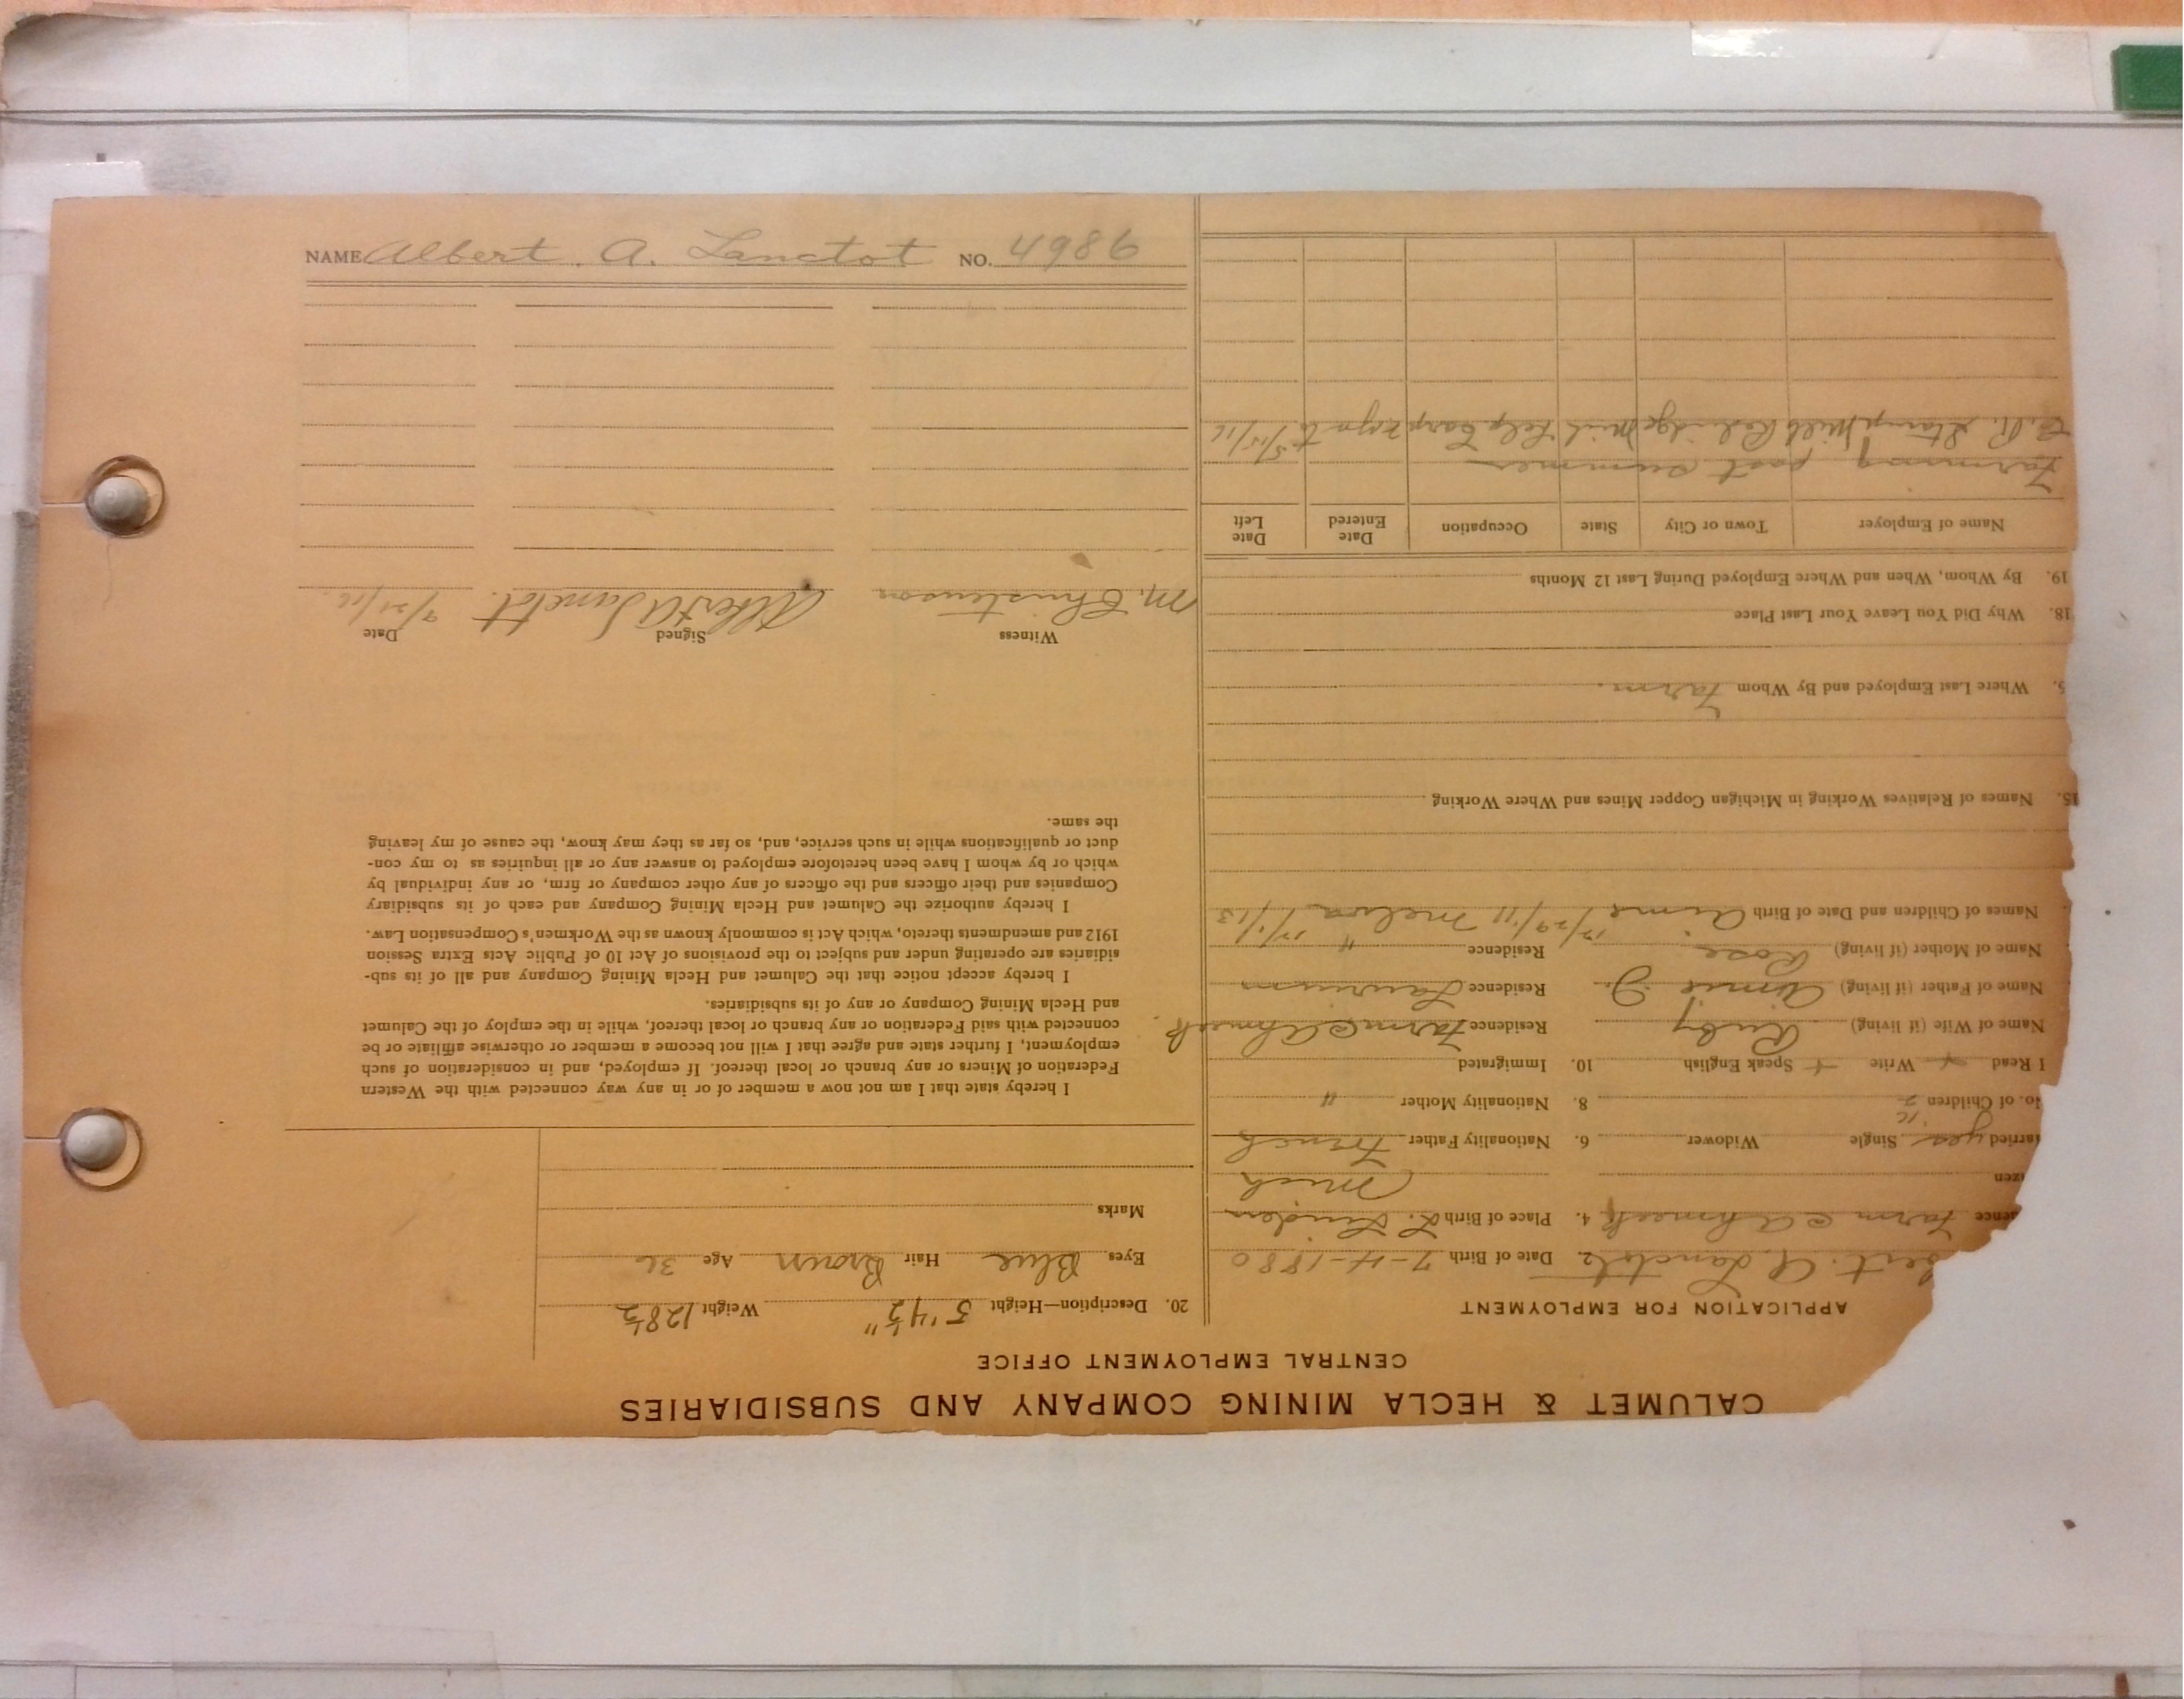 NAME Albert. A. Lanctot NO. 4986
CALUMET & HECLA MINING COMPANY AND SUBSIDIARIES
CENTRAL EMPLOYMENT OFFICE
APPLICATION FOR EMPLOYMENT
bert. A. Lanctot 2. Date of Birth 7-4-1880
ence Farm Ahmeek 4. Place of Birth L. Linden
izen Mich
arried yes Single Widower 6. Nationality Father French
No. of Children 2 8. Nationality Mother "
I Read Write Speak English 10. Immigrated
Name of Wife (if living) Ruby Residence Farm Ahmeek.
Name of Father (if living) Aimie J. Residence Laurium
Name of Mother (if living) Rose Residence "
Names of Children and Date of Birth Aime 12/29/11 Melva 12/1/13
15. Names of Relatives Working in Michigan Copper Mines and Where Working
5. Where Last Employed and By Whom Farm.
18. Why Did You Leave Your Last Place
19. By Whom, When and Where Employed During Last 12 Months
Name of Employer Town or City State Occupation Date Entered Date Left
Farming past summer
C.R. Stamp Mill Redridge Mich Help Carp 5/15/16
20. Description—Height 5'4½" Weight 128½
Eyes Blue Hair Brown Age 36
Marks
I hereby state that I am not now a member of or in any way connected with the Western
Federation of Miners or any branch or local thereof. If employed, and in consideration of such
employment, I further state and agree that I will not become a member or otherwise affiliate or be
connected with said Federation or any branch or local thereof, while in the employ of the Calumet
and Hecla Mining Company or any of its subsidiaries.
I hereby accept notice that the Calumet and Hecla Mining Company and all of its sub-
sidiaries are operating under and subject to the provisions of Act 10 of Public Acts Extra Session
1912 and amendments thereto, which Act is commonly known as the Workmen's Compensation Law.
I hereby authorize the Calumet and Hecla Mining Company and each of its subsidiary
Companies and their officers and the officers of any other company or firm, or any individual by
which or by whom I have been heretofore employed to answer any or all inquiries as to my con-
duct or qualifications while in such service, and, so far as they may know, the cause of my leaving
the same.
Witness Signed Date
M. Christenson Albert A Lanctot. 9/21/16.